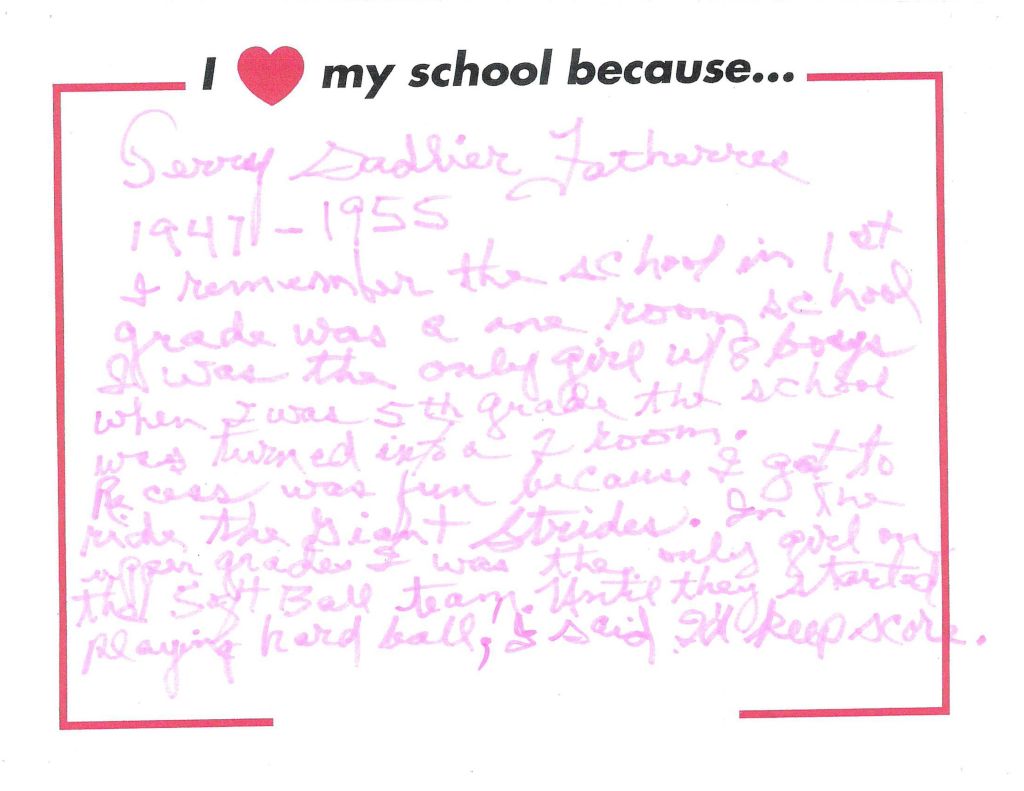 I ♥ my school because...
Sadlier
1947 - 1955
I remember the school in 1st
grade was a one room school
I was the only girl w/ 8 boys
when I was 5th grade the school
was turned into a 2 room.
Recess was fun because I got to
ride the Giant Strides. In the
upper grades I was the only girl on
the Soft Ball team. Until they started
playing hard ball, I said I'd keep score.